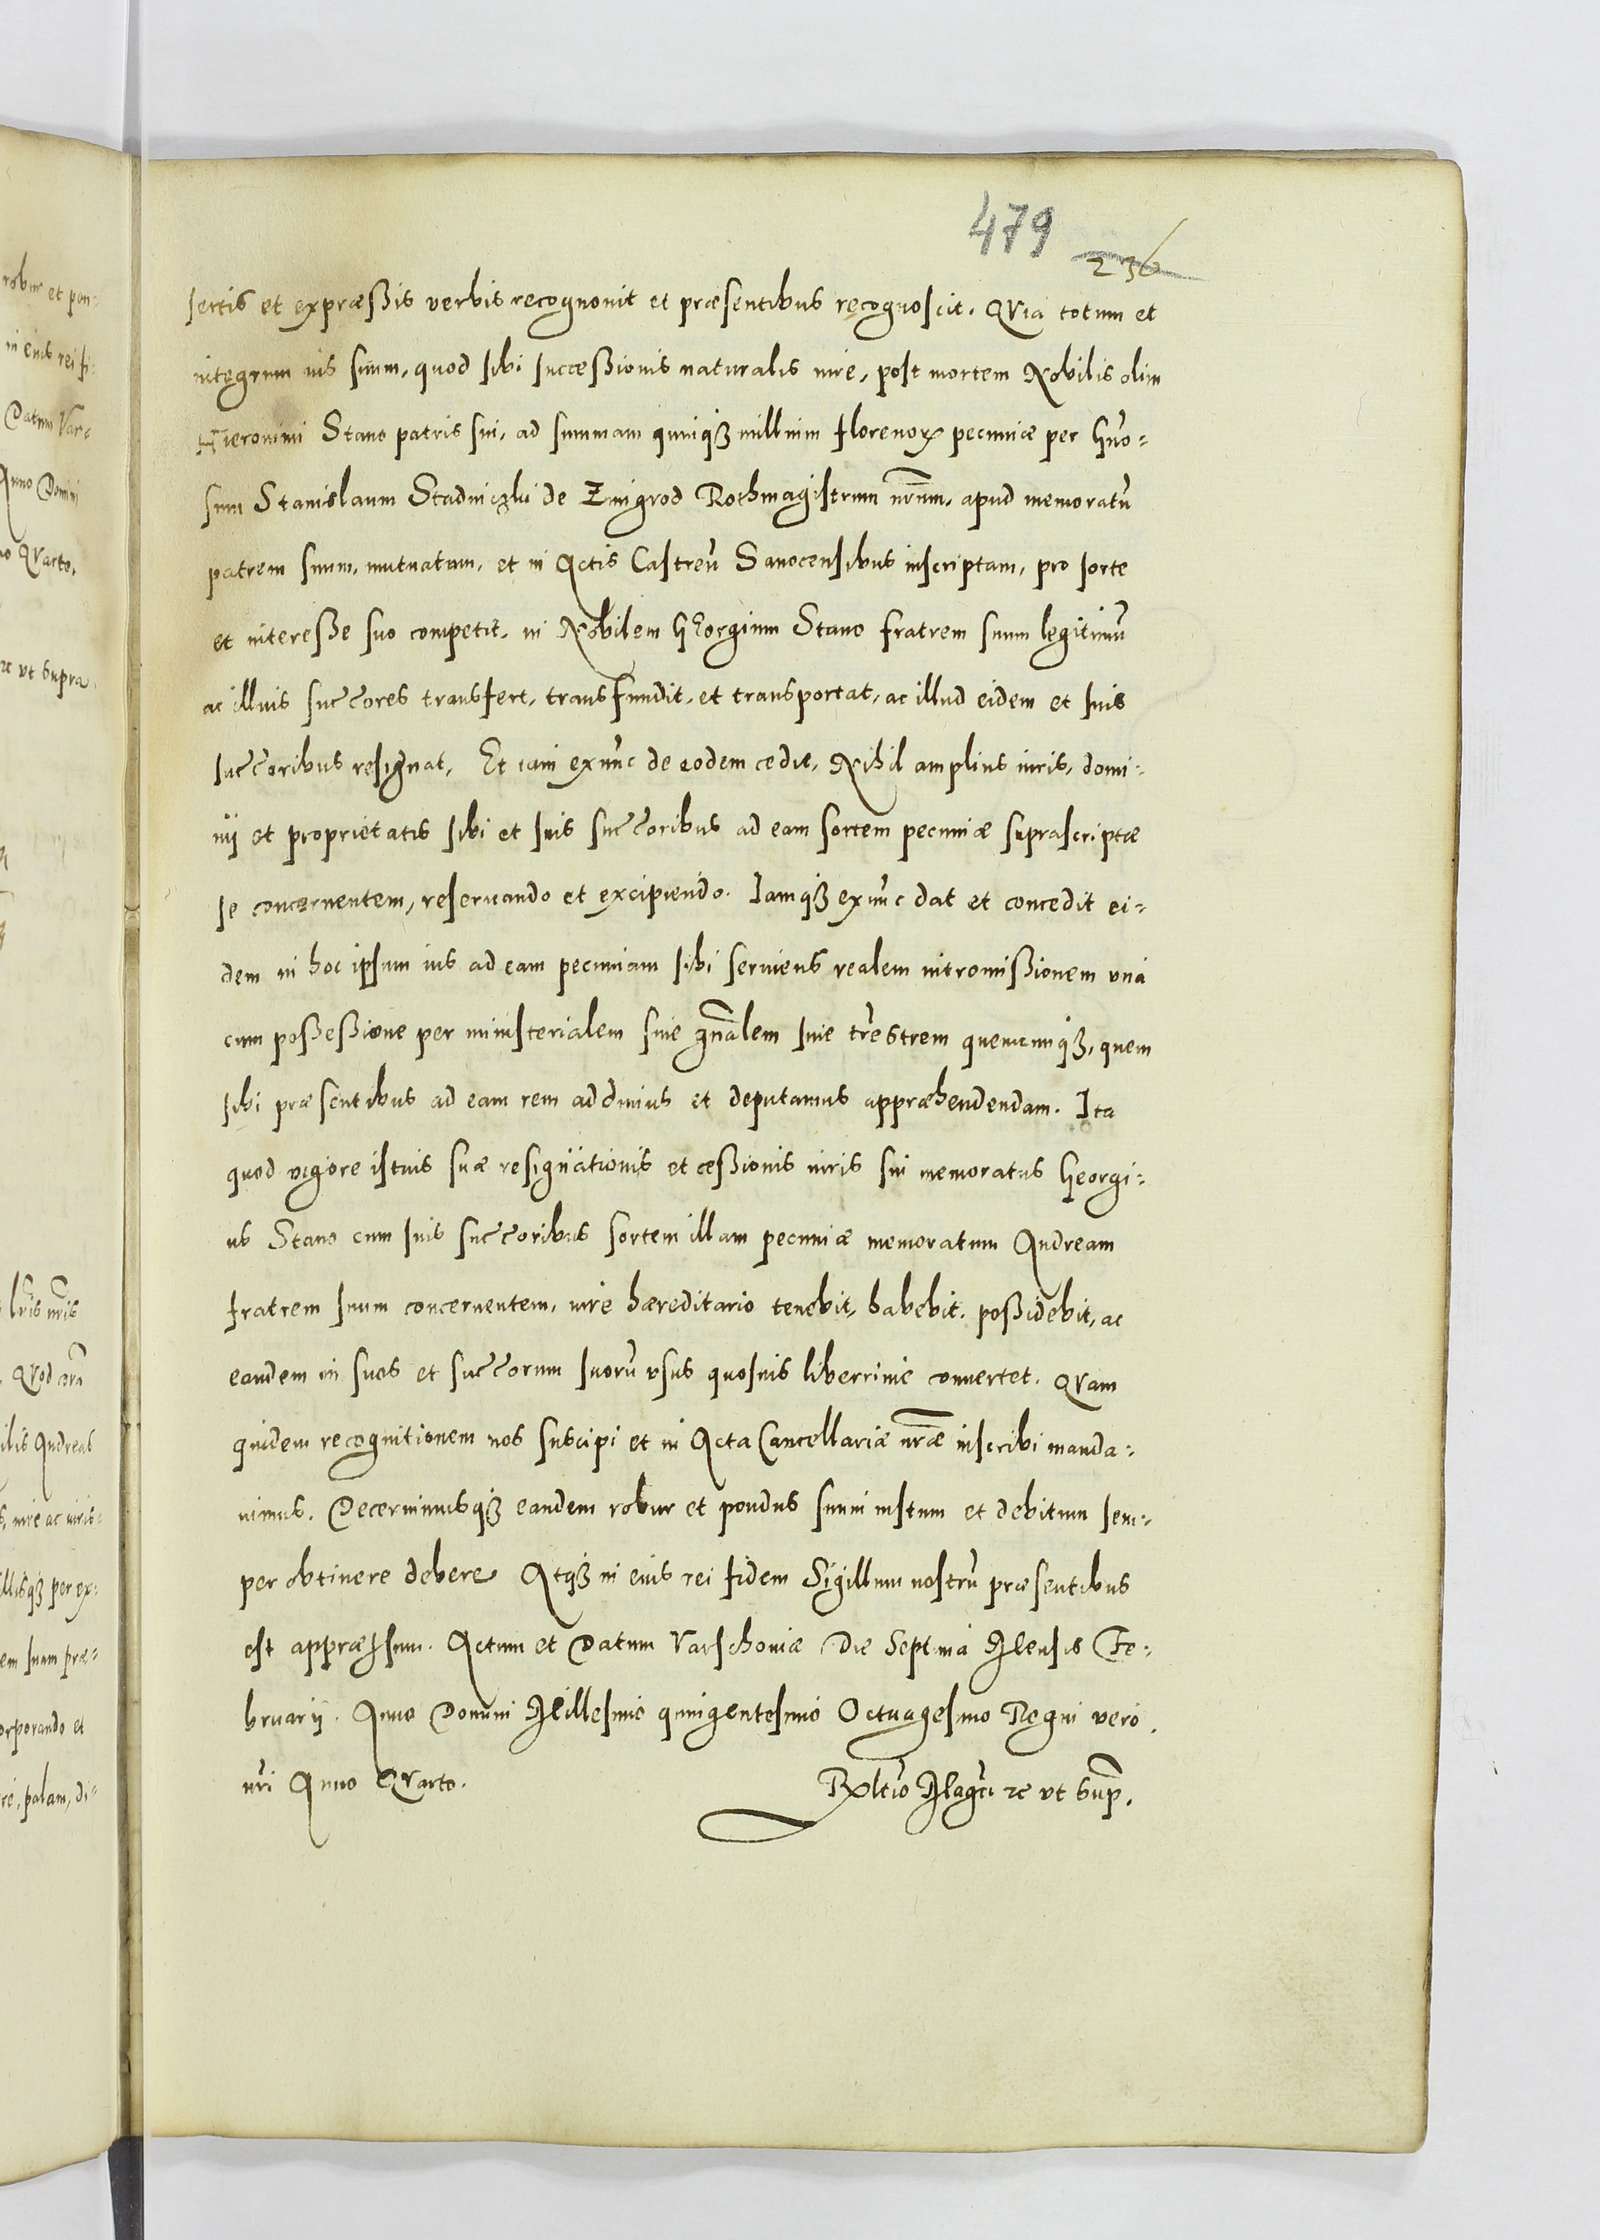 479
236
sertis et expræßis verbis recognouit et præsentibus recognoscit. QVia totum et
integrum ius suum, quod sibi succeßionis naturalis iure, post mortem Nobilis olim
Hieronimi Stano patris sui, ad summam quinqꝫ millium florenoꝝ pecuniæ per Gn̄o-
sum Stanislaum Stadniczki de Zmigrod Rothmagistrum nr̄um, apud memoratū
patrem suum, mutuatam, et in Actis Castreñ Sanocensibus inscriptam, pro sorte
et intereße suo competit, in Nobilem GEorgium Stano fratrem suum legitimū
ac illius succ̄ores transfert, transfundit, et transportat, ac illud eidem et suis
succ̄oribus resignat, Et iam exnūc de eodem cedit, Nihil amplius iuris, domi-
nij et proprietatis sibi et suis succ̄oribus ad eam sortem pecuniæ suprascriptæ
se concernentem, reseruando et excipiendo. Iamqꝫ exnūc dat et concedit ei-
dem in hoc ipsum ius ad eam pecuniam sibi seruiens realem intromißionem vná
cum poßeßione per ministerialem siue gn̄alem siue tr̄estrem quemcunqꝫ, quem
sibi præsentibus ad eam rem addimus et deputamus appræhendendam. Ita
quod vigore istius suæ resignationis et ceßionis iuris sui memoratus Georgi-
us Stano cum suis succ̄oribus sortem illam pecuniæ memoratum Andream
fratrem suum concernentem, iure hæreditario tenebit, habebit, poßidebit, ac
eandem in suos et succ̄orum suorū vsus quosuis liberrime conuertet. QVam
quidem recognitionem nos suscipi et in Acta Cancellariæ nr̄æ inscribi manda-
uimus. Decernimusqꝫ eandem robur et pondus suum iustum et debitum sem-
per obtinere debere. Atqꝫ in eius rei fidem Sigillum nostrū præsentibus
est appræssum. Actum et Datum Varschouiæ Die Septima Mensis Fe-
bruarij. Anno Domini Millesimo quingentesimo Octuagesimo Regni vero
nr̄i Anno QVarto.
Rltīo Magci ꝛc vt sup̄.